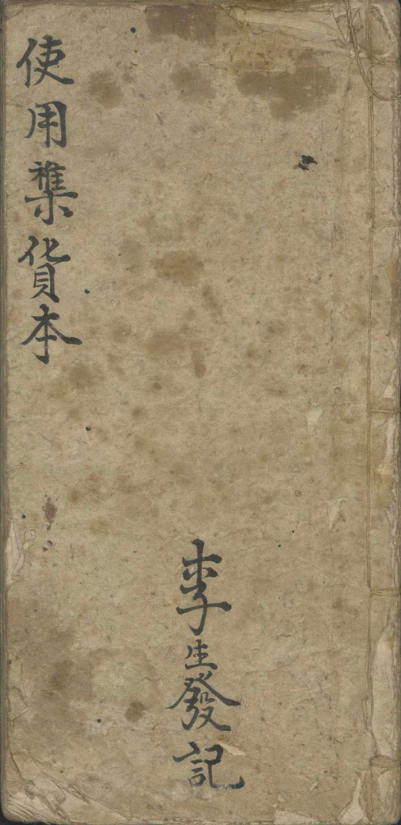 使用集貨本
李生發記